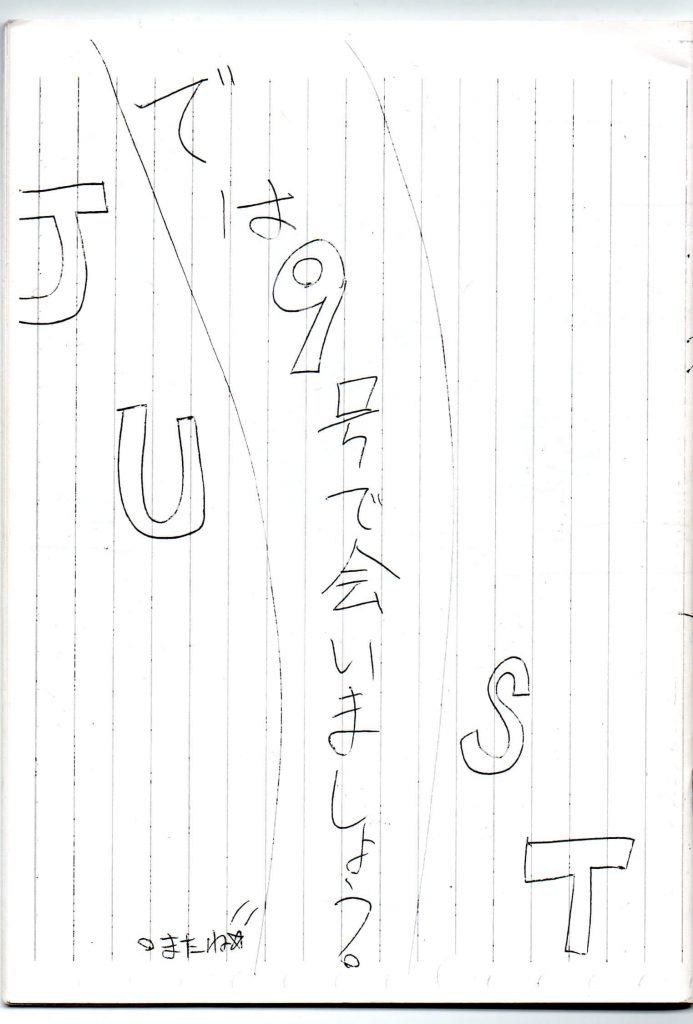 では9号で会いましょう。
JUST
。またね☆